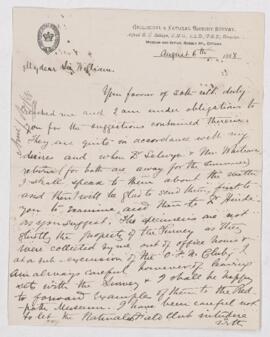 GEOLOGICAL & NATURAL HISTORY SURVEY.
Alfred R. C. Selwyn, C.M.G., LL.D., F.R.S., Director.
MUSEUM AND OFFICE, SUSSEX ST., OTTAWA
August 6th 1888
My dear Sir William,
Your favour of 20th ult duly
reached me and I am under obligations to
you for the suggestions contained therein.
They are quite in accordance with my
desires and when Dr Selwyn & Mr Whiteaves
return (for both are away for the summer)
I shall speak to them about the matter
and then will be glad to send them, first to
you to examine and then to Dr Hinde.
The specimens are not
strictly the property of the Survey as they
were collected by me out of office hours &
at a sub-excursion of the O. F. N. Club;
am always careful however of
sets with the Survey & I shall be happy
to forward examples of them to the Red-
path Museum. I have been careful not
to let the Naturalists Field Club interfere
with